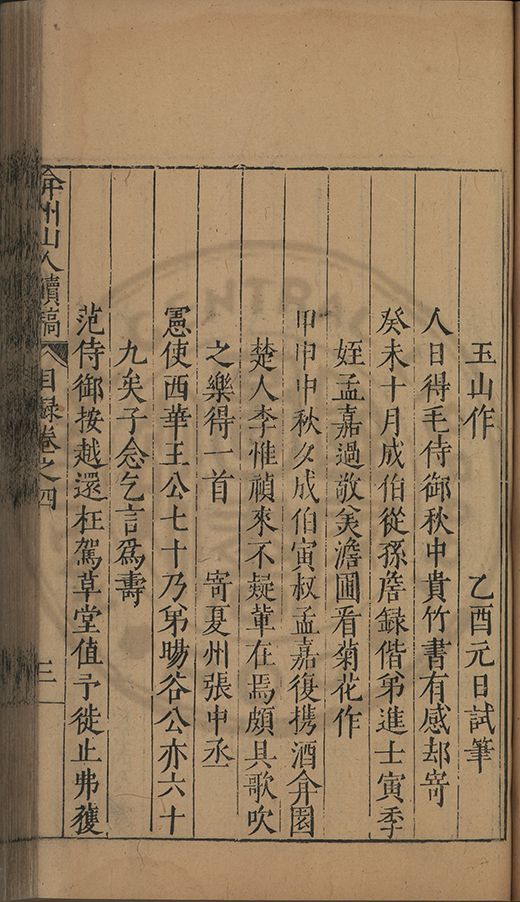 玉山作　乙酉元日試筆
人日得毛侍御秋中貴竹書有感却寄
癸未十月成伯從孫詹録偕弟進士寅季
姪孟嘉過敬美澹圃看菊花作
甲申中秋夕成伯寅叔孟嘉復携酒弇園
楚人李惟禎來不疑輩在焉頗具歌吹
之樂得一首　寄夏州張中丞
憲使西華王公七十乃弟暘谷公亦六十
九矣子念乞言爲壽
范侍御按越還枉駕草堂值予徙止弗獲
弇州山人續稿　目録卷之四　三